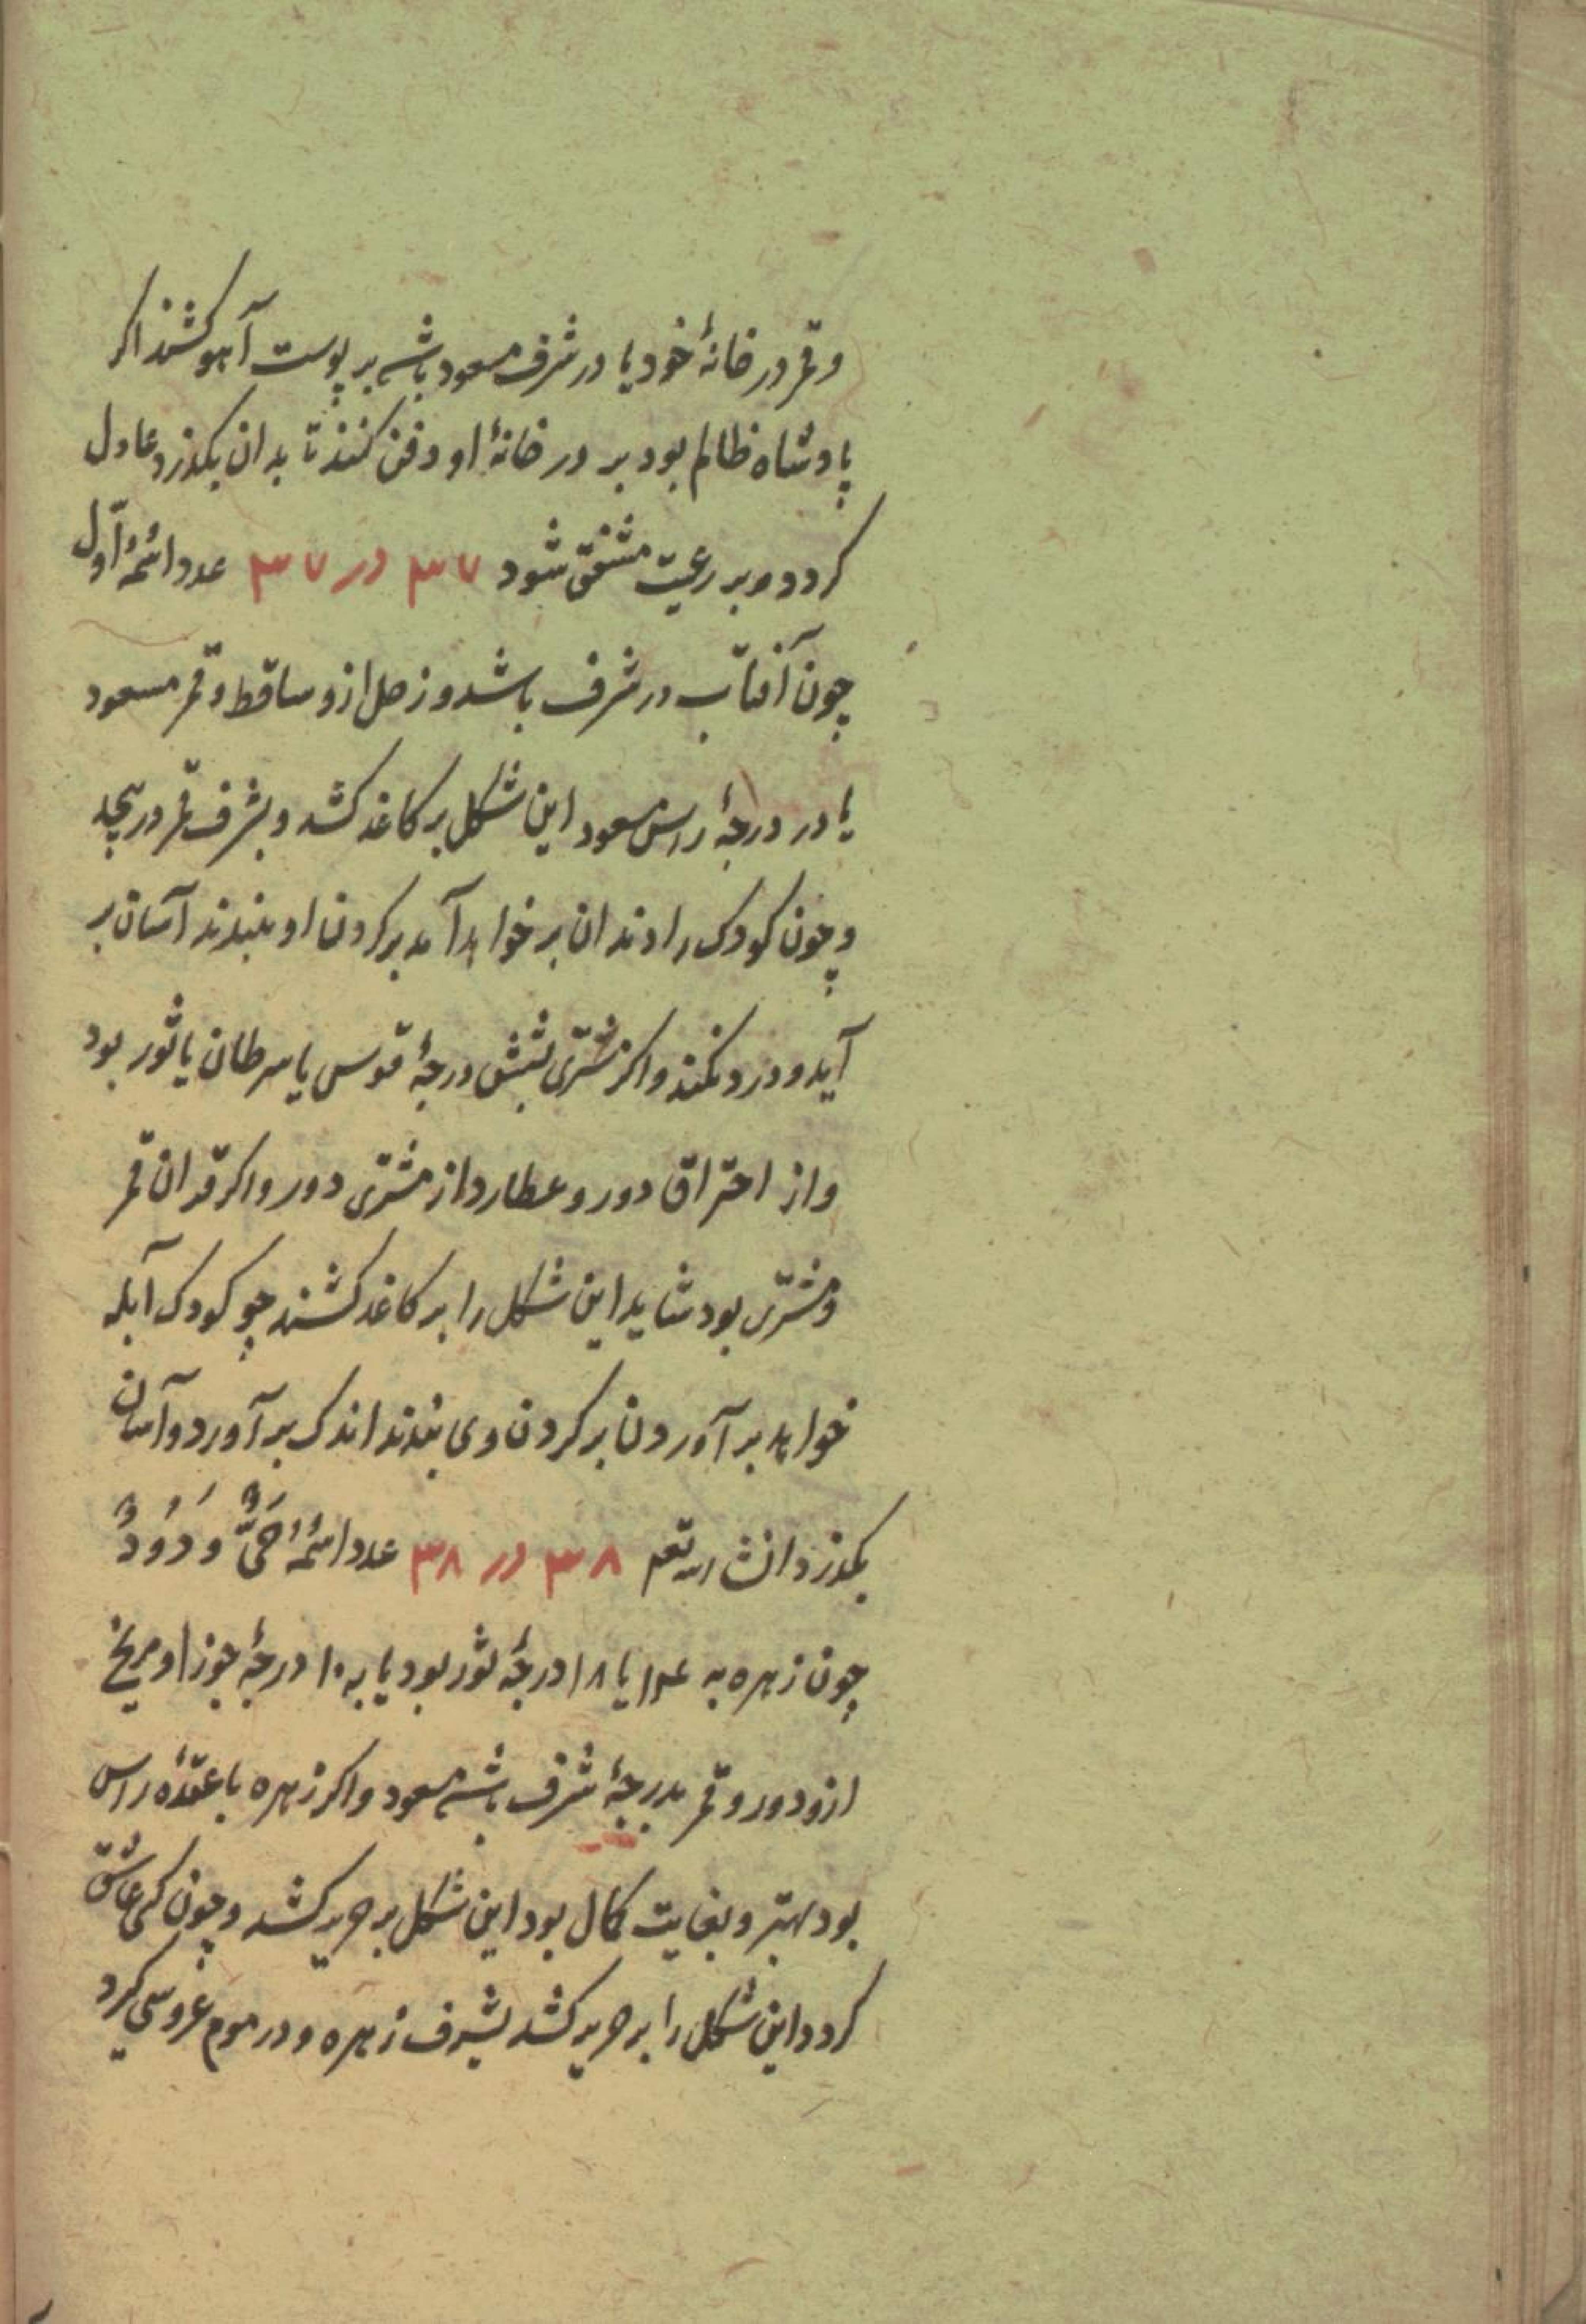 وقمر در خانهٔ خود یا در شرف مسعود باشد بر پوست آهو کشند اکر
پادشاه ظالم بود بر در خانهٔ او دفن کنند تا بدان بکذرد عادل
کردد و بر رعیت مشفق شود ۳۷ در ۳۷ عدد اسمهٔ اوّل
چون آفتاب در شرف باشد و زحل ازو ساقط و قمر مسعود
یا در درجهٔ راس مسعود این شکل بر کاغذ کشد و بشرف قمر در پیچد
و چون کودک را دندان بر خواهد آمد بر کردن او بندند آسان بر
آید و درد نکند و اکر مشتری بشش درجهٔ قوس یا سرطان یا ثور بود
و از احتراق دور و عطارد از مشتری دور و اکر قران قمر
و مشتری بود شاید این شکل را بر کاغذ کشند چو کودک آبله
خواهد بر آوردن بر کردن وی بندند اندک بر آورد و آسان
بکذرد انشا الله تعم ۳۸ در ۳۸ عدد اسمهٔ حَیٌّ وَدُودٌ
چون زهره به ۱۴ یا ۱۸ درجهٔ ثور بود یا به ۱۰ درجهٔ جوزا و مریخ
ازو دور و قمر بدرجهٔ شرف باشد مسعود و اکر زهره با عقدهٔ راس
بود بهتر و بغایت کمال بود این شکل بر حریر کشد و چون کسی عاشق
کردد این شکل را بر حریر کشد بشرف زهره و در موم عروسی کرد